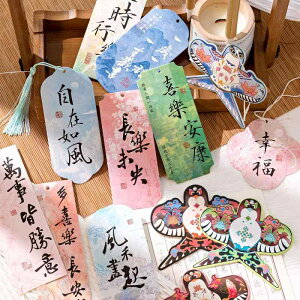 時
行
自
在
如
風
喜
樂
安
康
長
樂
未
央
幸
福
萬
事
皆
勝
意
多
喜
樂
長
安
風
禾
盡
起